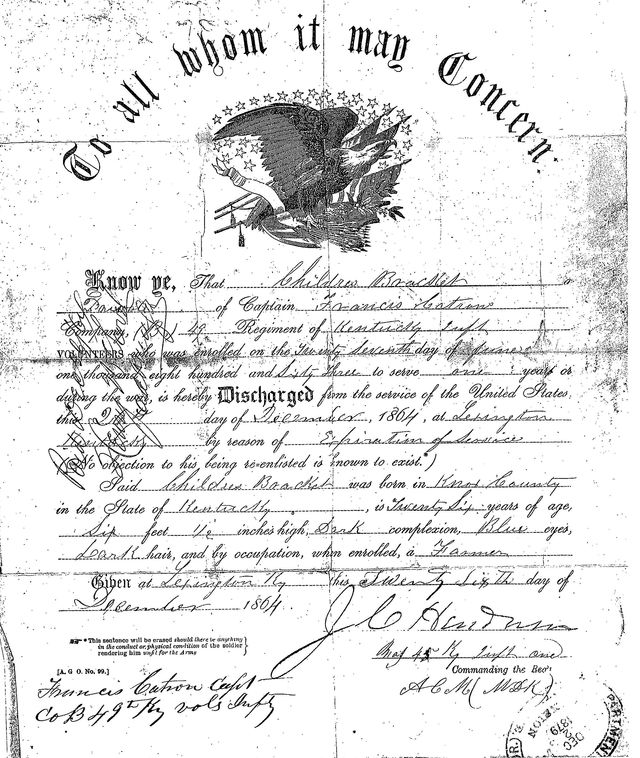 To all whom it may Concern:
Know ye, That Childres Bracket a
of Captain Francis Catron
Company (B) 49 Regiment of Kentucky Inft
VOLUNTEERS who was enrolled on the Twenty Seventh day of June
one thousand eight hundred and Sixty Three to serve one years or
during the war, is hereby Discharged from the service of the United States,
this day of December, 1864, at Lexington
Kentucky by reason of Expiration of Service
(No objection to his being re-enlisted is known to exist.*)
Said Childres Bracket was born in Knox County
in the State of Kentucky, is Twenty Six years of age,
Six feet ½ inches high, Dark complexion, Blue eyes,
Dark hair, and by occupation, when enrolled, a Farmer
Given at Lexington Ky this Twenty Sixth day of
December 1864.
J C
*This sentence will be erased should there be anything
in the conduct or physical condition of the soldier
rendering him unfit for the Army
Ky Inft
Commanding the Reg't
[A. G O. No. 99.]
Francis Catron Capt
Co B 49th Ky vols Infty
A C M (M D K)
DEC
1879